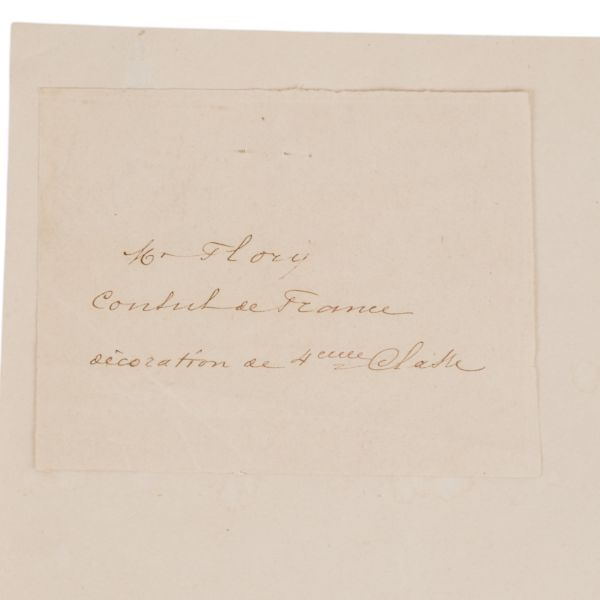 Mr Flory
Consul de France
décoration de 4eme Classe